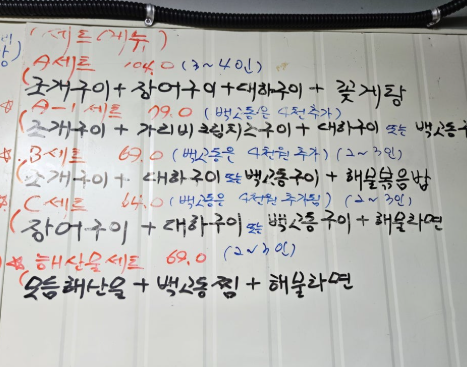 (세트메뉴)
A세트 104.0 (3~4인)
조개구이 + 장어구이 + 대하구이 + 꽃게탕
A-1세트 79.0 (백고동은 4천추가)
조개구이 + 가리비크림치즈구이 + 대하구이 또는 백고동구
B세트 69.0 (백고동은 4천원 추가) (2~3인)
조개구이 + 대하구이 또는 백고동구이 + 해물볶음밥
C세트 64.0 (백고동은 4천원 추가됨) (2~3인)
장어구이 + 대하구이 또는 백고동구이 + 해물라면
해산물세트 69.0 (2~3인)
모듬해산물 + 백고동찜 + 해물라면